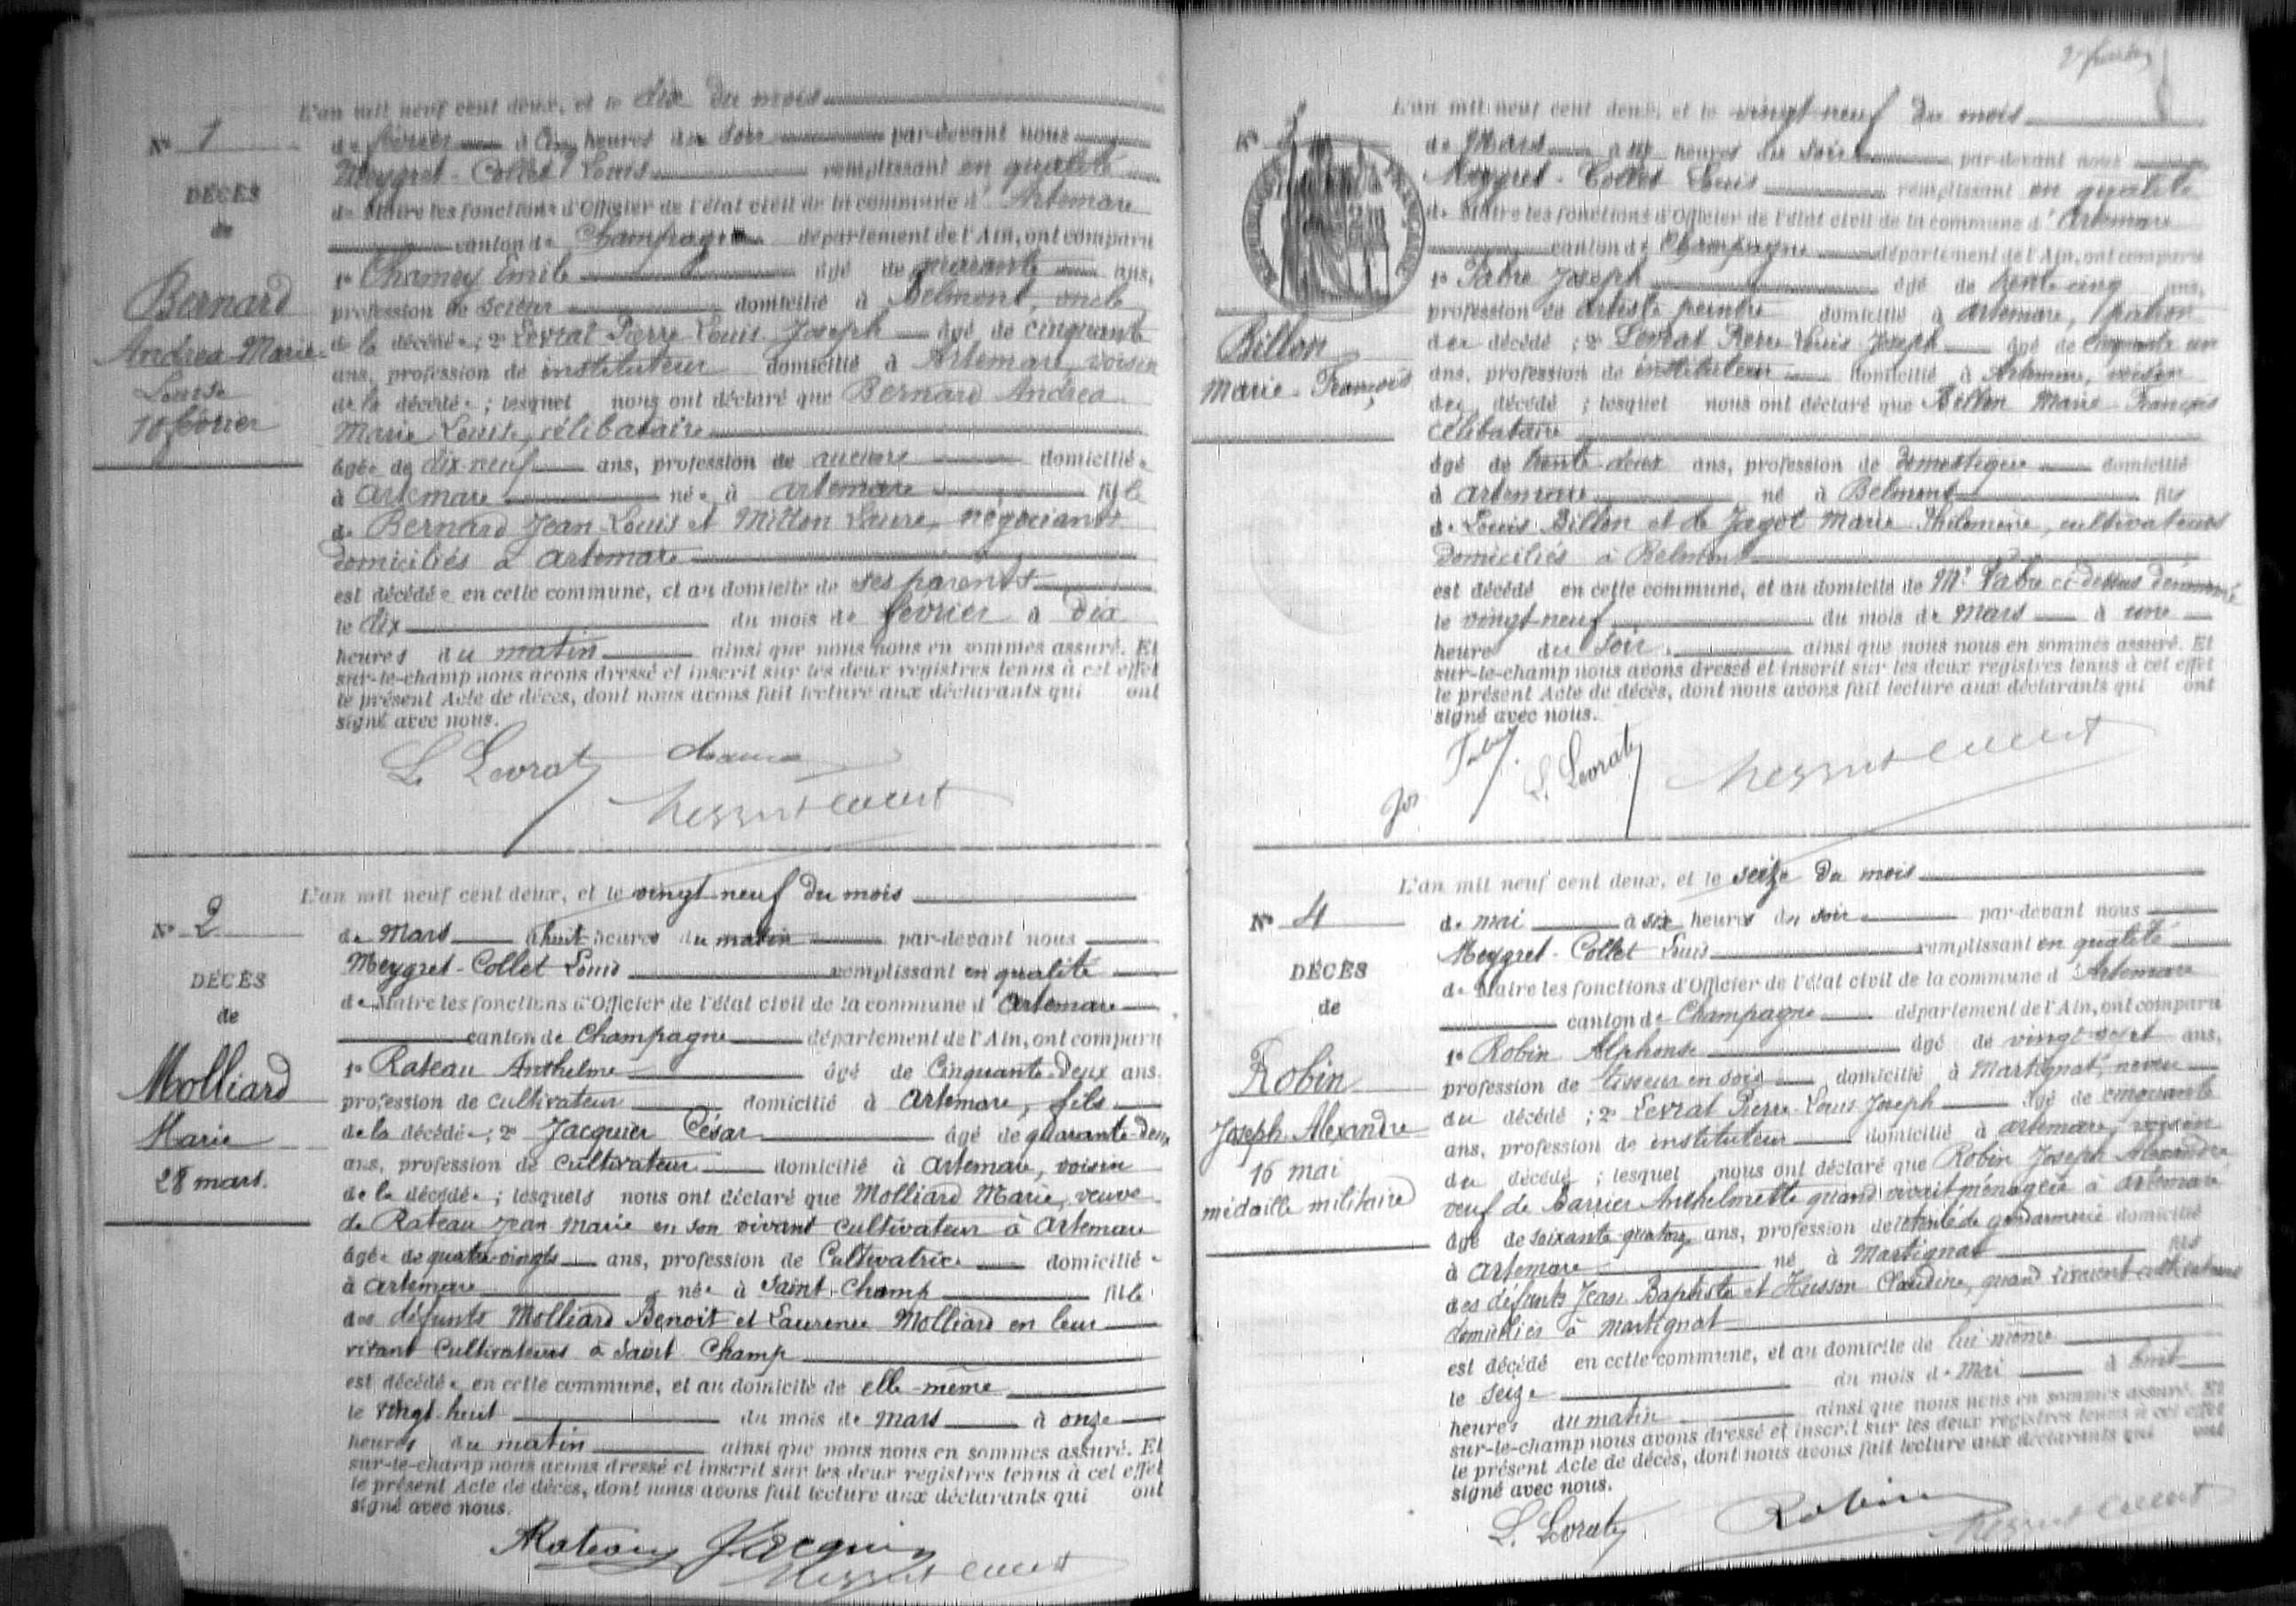 L'an mil neuf cent deux, et le dix du mois
N° 1
de février à cinq heures du soir par-devant nous
Meygret-Collet Louis remplissant en qualité
DÉCÈS
de Maire les fonctions d'Officier de l'état civil de la commune d'Artemare
de
canton de Champagne département de l'Ain, ont comparu
1° Chamoy Emile âgé de quarante ans,
Bernard
profession de scieur domicilié à Belmont, oncle
Andrea-Marie-
de la décédée; 2° Levrat Pierre Louis Joseph âgé de cinquante
ans, profession de instituteur domicilié à Artemare, voisin
Louise
de la décédée; lesquel nous ont déclaré que Bernard Andrea
10 février
Marie Louise, célibataire
âgée de dix-neuf ans, profession de aucune domiciliée
à Artemare née à Artemare fille
de Bernard Jean-Louis et Milton Laure, négociants
domiciliés à Artemare
est décédée en cette commune, et au domicile de ses parents
le dix du mois de février à dix
heures du matin ainsi que nous nous en sommes assuré. Et
sur-le-champ nous avons dressé et inscrit sur les deux registres tenus à cet effet
le présent Acte de décès, dont nous avons fait lecture aux déclarants qui ont
signé avec nous.
L. Levrat
L'an mil neuf cent deux, et le vingt-neuf du mois
N° 2
de Mars à huit heures du matin par-devant nous
Meygret-Collet Louis remplissant en qualité
DÉCÈS
de Maire les fonctions d'Officier de l'état civil de la commune d'Artemare
de
canton de Champagne département de l'Ain, ont comparu
Molliard
1° Rateau Anthelme âgé de Cinquante-Deux ans.
profession de cultivateur domicilié à Artemare, fils
Marie
de la décédée; 2° Jacquier César âgé de quarante-deux
ans, profession de cultivateur domicilié à Artemare, voisin
28 mars.
de la décédée; lesquels nous ont déclaré que Molliard Marie, veuve
de Rateau Jean Marie en son vivant cultivateur à Artemare
âgée de quatre-vingts ans, profession de Cultivatrice domiciliée
à Artemare née à Saint-Champ fille
des défunts Molliard Benoit et Laurence Molliard en leur
vivant Cultivateurs à Saint-Champ
est décédée en cette commune, et au domicile de elle-même
le vingt-huit du mois de mars à onze
heures du matin ainsi que nous nous en sommes assuré. Et
sur-le-champ nous avons dressé et inscrit sur les deux registres tenus à cet effet
le présent Acte de décès, dont nous avons fait lecture aux déclarants qui ont
signé avec nous.
Rateau Jacquier
L'an mil neuf cent deux, et le vingt-neuf du mois
N° 3
de Mars à heures du soir par-devant nous
Meygret-Collet Louis remplissant en qualité
de Maire les fonctions d'Officier de l'état civil de la commune d'Artemare
canton de Champagne département de l'Ain, ont comparu
1° Fabre Joseph âgé de trente-cinq ans,
profession de artiste peintre domicilié à Artemare, patron
Billon
du décédé; 2° Levrat Pierre Louis Joseph âgé de cinquante un
Marie-François
ans, profession de instituteur domicilié à Artemare, voisin
du décédé; lesquel nous ont déclaré que Billon Marie-François
célibataire
âgé de trente-deux ans, profession de domestique domicilié
à Artemare né à Belmont fils
de Louis Billon et de Jagot Marie Philomène, cultivateurs
domiciliés à Belmont
est décédé en cette commune, et au domicile de Mr Fabre ci-dessus dénommé
le vingt-neuf du mois de Mars à une
heure du soir ainsi que nous nous en sommes assuré. Et
sur-le-champ nous avons dressé et inscrit sur les deux registres tenus à cet effet
le présent Acte de décès, dont nous avons fait lecture aux déclarants qui ont
signé avec nous.
L. Levrat
L'an mil neuf cent deux, et le seize du mois
N° 4
de mai à six heures du soir par-devant nous
Meygret-Collet Louis remplissant en qualité
DÉCÈS
de Maire les fonctions d'Officier de l'état civil de la commune d'Artemare
de
canton de Champagne département de l'Ain, ont comparu
1° Robin Alphonse âgé de vingt-sept ans,
Robin
profession de tisseur en soie domicilié à Martignat, neveu
Joseph Alexandre
du décédé; 2° Levrat Pierre-Louis Joseph âgé de cinquante
ans, profession de instituteur domicilié à Artemare, voisin
16 mai
du décédé; lesquel nous ont déclaré que Robin Joseph Alexandre
médaille militaire
veuf de Barrier Anthelmette quand vivait ménagère à Artemare
âgé de soixante-quatorze ans, profession de retraité de gendarmerie domicilié
à Artemare né à Martignat fils
des défunts Jean Baptiste et Husson Claudine, quand vivaient cultivateurs
domiciliés à Martignat
est décédé en cette commune, et au domicile de lui même
le seize du mois de mai à huit
heures du matin ainsi que nous nous en sommes assuré. Et
sur-le-champ nous avons dressé et inscrit sur les deux registres tenus à cet effet
le présent Acte de décès, dont nous avons fait lecture aux déclarants qui ont
signé avec nous.
L. Levrat Robin